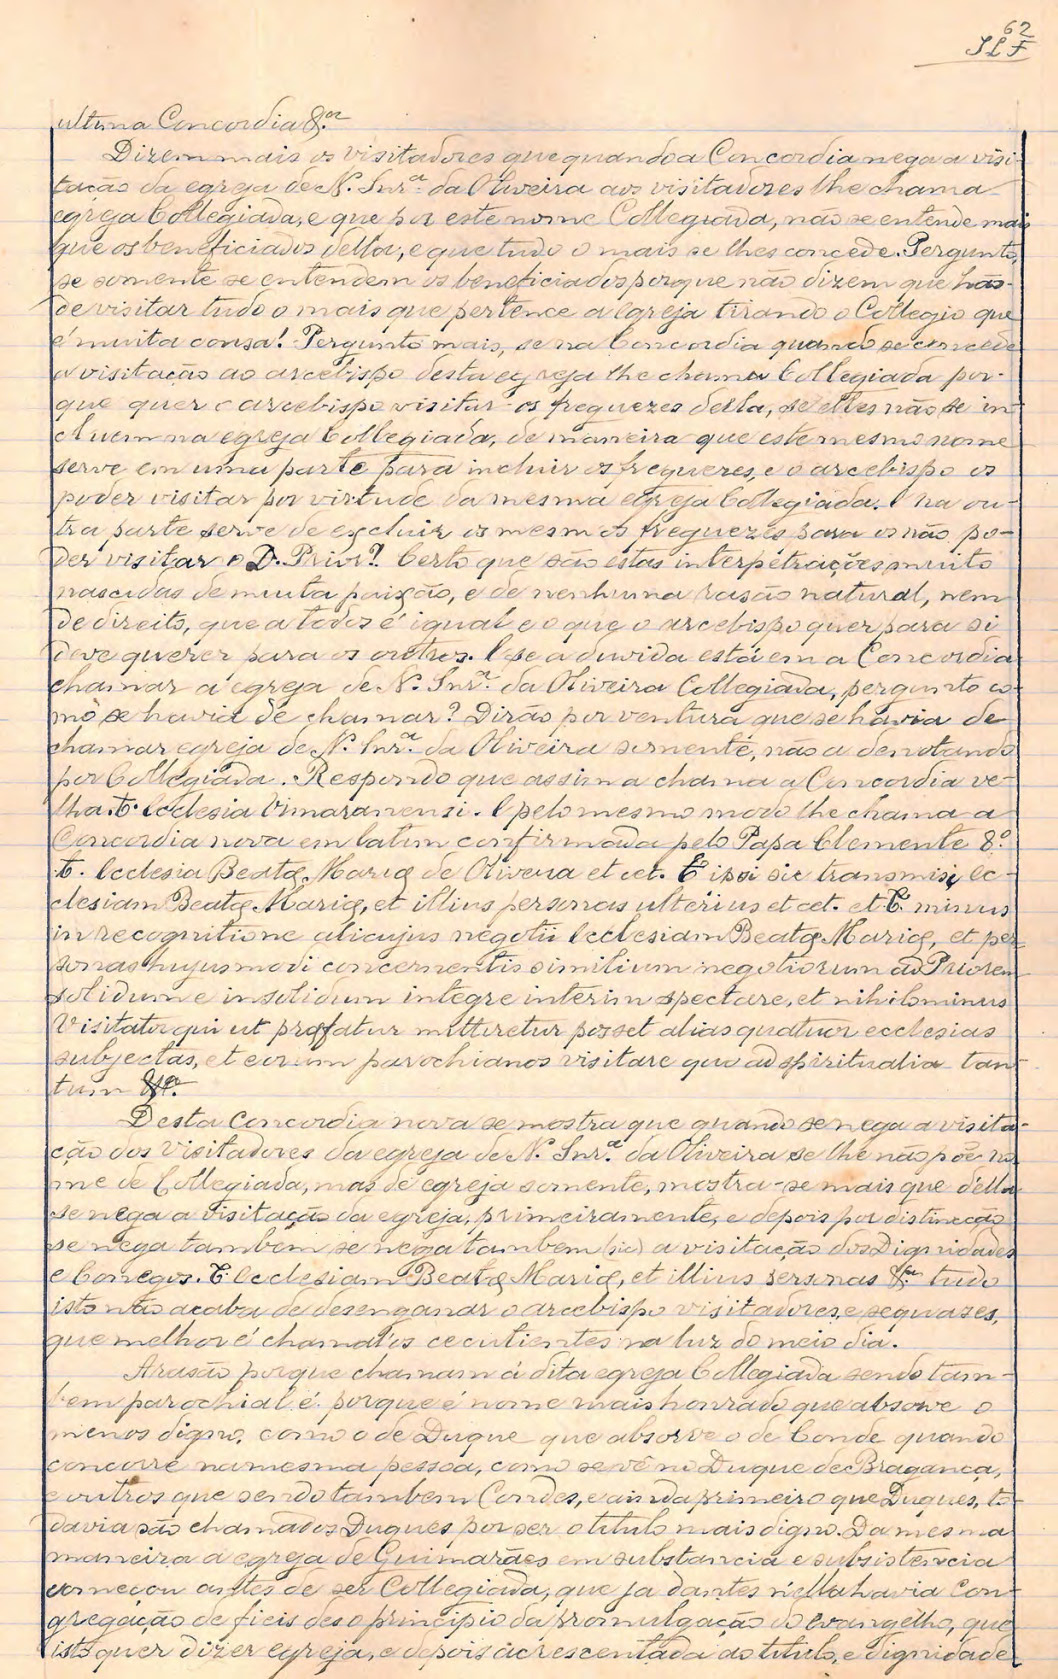 62
ultima Concordia &.ª
Dizem mais os visitadores que quando a Concordia nega a visi-
tação da egreja de N. Snr.ª da Oliveira aos visitadores lhe chama
egreja Collegiada, e que por este nome Collegiada, não se entende mais
que os beneficiados della, e que tudo o mais se lhes concede. Pergunto,
se somente se entendem os beneficiados porque não dizem que hão-
de visitar tudo o mais que pertence a Igreja tirando o Collegio que
é muita cousa! Pergunto mais, se na Concordia quando se concede
a visitação ao arcebispo desta egreja lhe chama Collegiada por-
que quer o arcebispo visitar os freguezes della, se elles não se in-
cluem na egreja Collegiada, de maneira que este mesmo nome
serve em uma parte para incluir os freguezes, e o arcebispo os
poder visitar por virtude da mesma egreja Collegiada. E na ou-
tra parte serve de excluir os mesmos freguezes para os não po-
der visitar o D. Prior? Certo que são estas interpétrações muito
nascidas de muita paixão, e de nenhuma rasão natural, nem
de direito, que a todos é igual e o que o arcebispo quer para si
deve querer para os outros. E se a duvida está em a Concordia
chamar á egreja de N. Snr.ª da Oliveira Collegiada, pergunto co-
mo se havia de chamar? Dirão por ventura que se havia de
chamar egreja de N. Snr.ª da Oliveira somente, não a denotando
por Collegiada. Respondo que assim a chama a Concordia ve-
lha. Ecclesia Vimaranensi. E pelo mesmo modo lhe chama a
Concordia nova em latim confirmada pelo Papa Clemente 8.º
Ecclesia Beatę Marię de Olivera et cet. sic transmisi ec-
clesiam Beatę Marię, et illius personas ulterius et cet. et minus
in recognitione alicujus negotii Ecclesiam Beatę Marię, et per-
sonas hujusmodi concernentis similium negotiorum ad Priorem
solidum e insolidum integre interim spectare, et nihilominus
Visitator qui ut pręfatur mitteretur posset alias quatuor ecclesias
subjectas, et eorum parochianos visitare quo ad spiritualia tan-
tum &ª.
Desta Concordia nova se mostra que quando se nega a visita-
ção dos Visitadores da egreja de N. Snr.ª da Oliveira se lhe não põe no-
me de Collegiada, mas de egreja somente, mostra-se mais que d'ella
se nega a visitação da egreja, primeiramente, e depois por distincção
se nega tambem se nega tambem (sic) a visitação dos Dignidades
e Conegos. Ecclesiam Beatę Marię, et illius personas &.ª tudo
isto não acaba de desenganar o arcebispo visitadores, e sequases,
que melhor é chamal'os cecutientes na luz do meio dia.
A rasão porque chamam á dita egreja Collegiada sendo tam-
bem parochial é porque é nome mais honrado que absorve o
menos digno, como o de Duque que absorve o de Conde quando
concorre na mesma pessoa, como se vê no Duque de Bragança,
e outros que sendo tambem Condes, e ainda primeiro que Duques, to-
davia são chamados Duques por ser o titulo mais digno. Da mesma
maneira a egreja de Guimarães em substancia e subsistencia
começou antes de ser Collegiada, que ja dantes n'ella havia Con-
gregação de fieis des o principio da promulgação do evangelho, que
isto quer dizer egreja, e depois acrescentada ao titulo, e dignidade